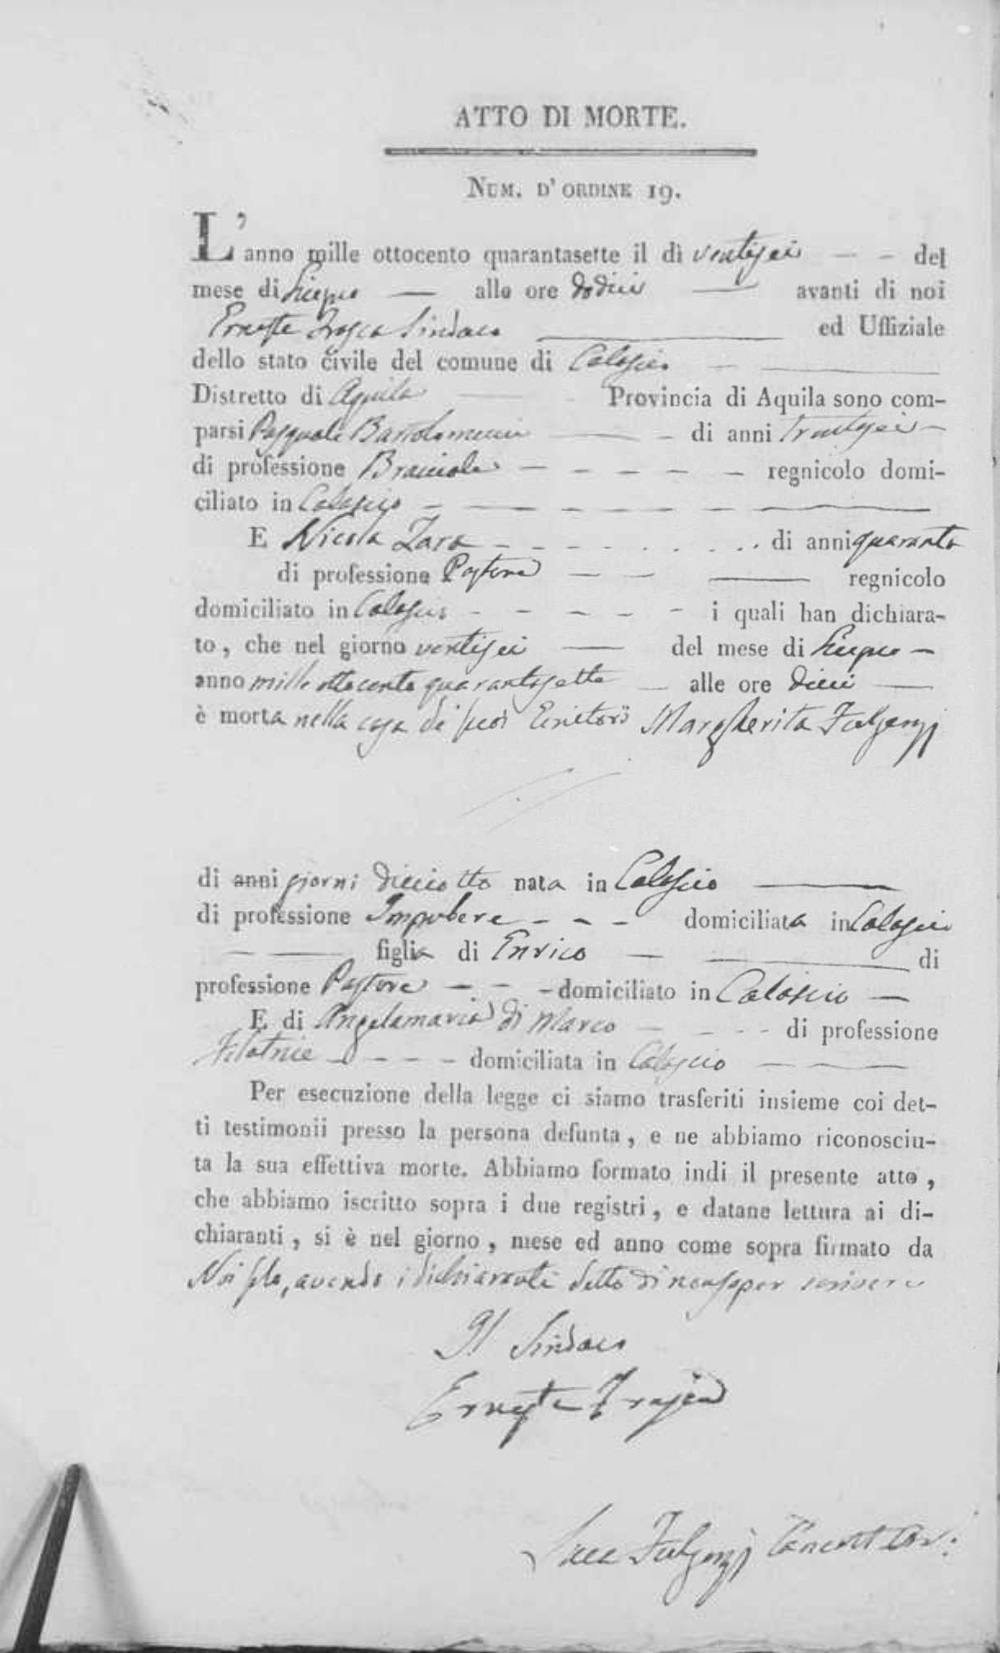 ATTO DI MORTE.
NUM. D' ORDINE 19.
L'anno mille ottocento quarantasette il dì ventisei — – del
mese di Giugno — alle ore dodici — avanti di noi
Ernesto Frasca Sindaco ed Uffiziale
dello stato civile del comune di Calascio —
Distretto di Aquila — Provincia di Aquila sono com-
parsi Pasquale Bartolomucci — – di anni trentasei –
di professione Bracciale – – – – – – regnicolo domi-
ciliato in Calascio – — – – – – —
E Nicola Zara – – – – . . . . di anni quaranta
di professione Pastore – – — regnicolo
domiciliato in Calascio - - – – – - i quali han dichiara-
to, che nel giorno ventisei — del mese di Giugno –
anno mille ottocento quarantasette — alle ore dieci —
è morta nella casa de' suoi Genitori Margherita Fulgenzj
di anni giorni dieciotto nata in Calascio —
di professione Impubere - - - domiciliata in Calascio
– — figlia di Enrico — — di
professione Pastore – - – domiciliato in Calascio —
E di Angelamaria di Marco – - - - di professione
Filatrice – - – - – domiciliata in Calascio — —
Per esecuzione della legge ci siamo trasferiti insieme coi det-
ti testimonii presso la persona defunta, e ne abbiamo riconosciu-
ta la sua effettiva morte. Abbiamo formato indi il presente atto,
che abbiamo iscritto sopra i due registri, e datane lettura ai di-
chiaranti, si è nel giorno, mese ed anno come sopra firmato da
Noi solo, avendo i dichiaranti detto di non saper scrivere
Il Sindaco
Ernesto Frasca
Fulgenzj